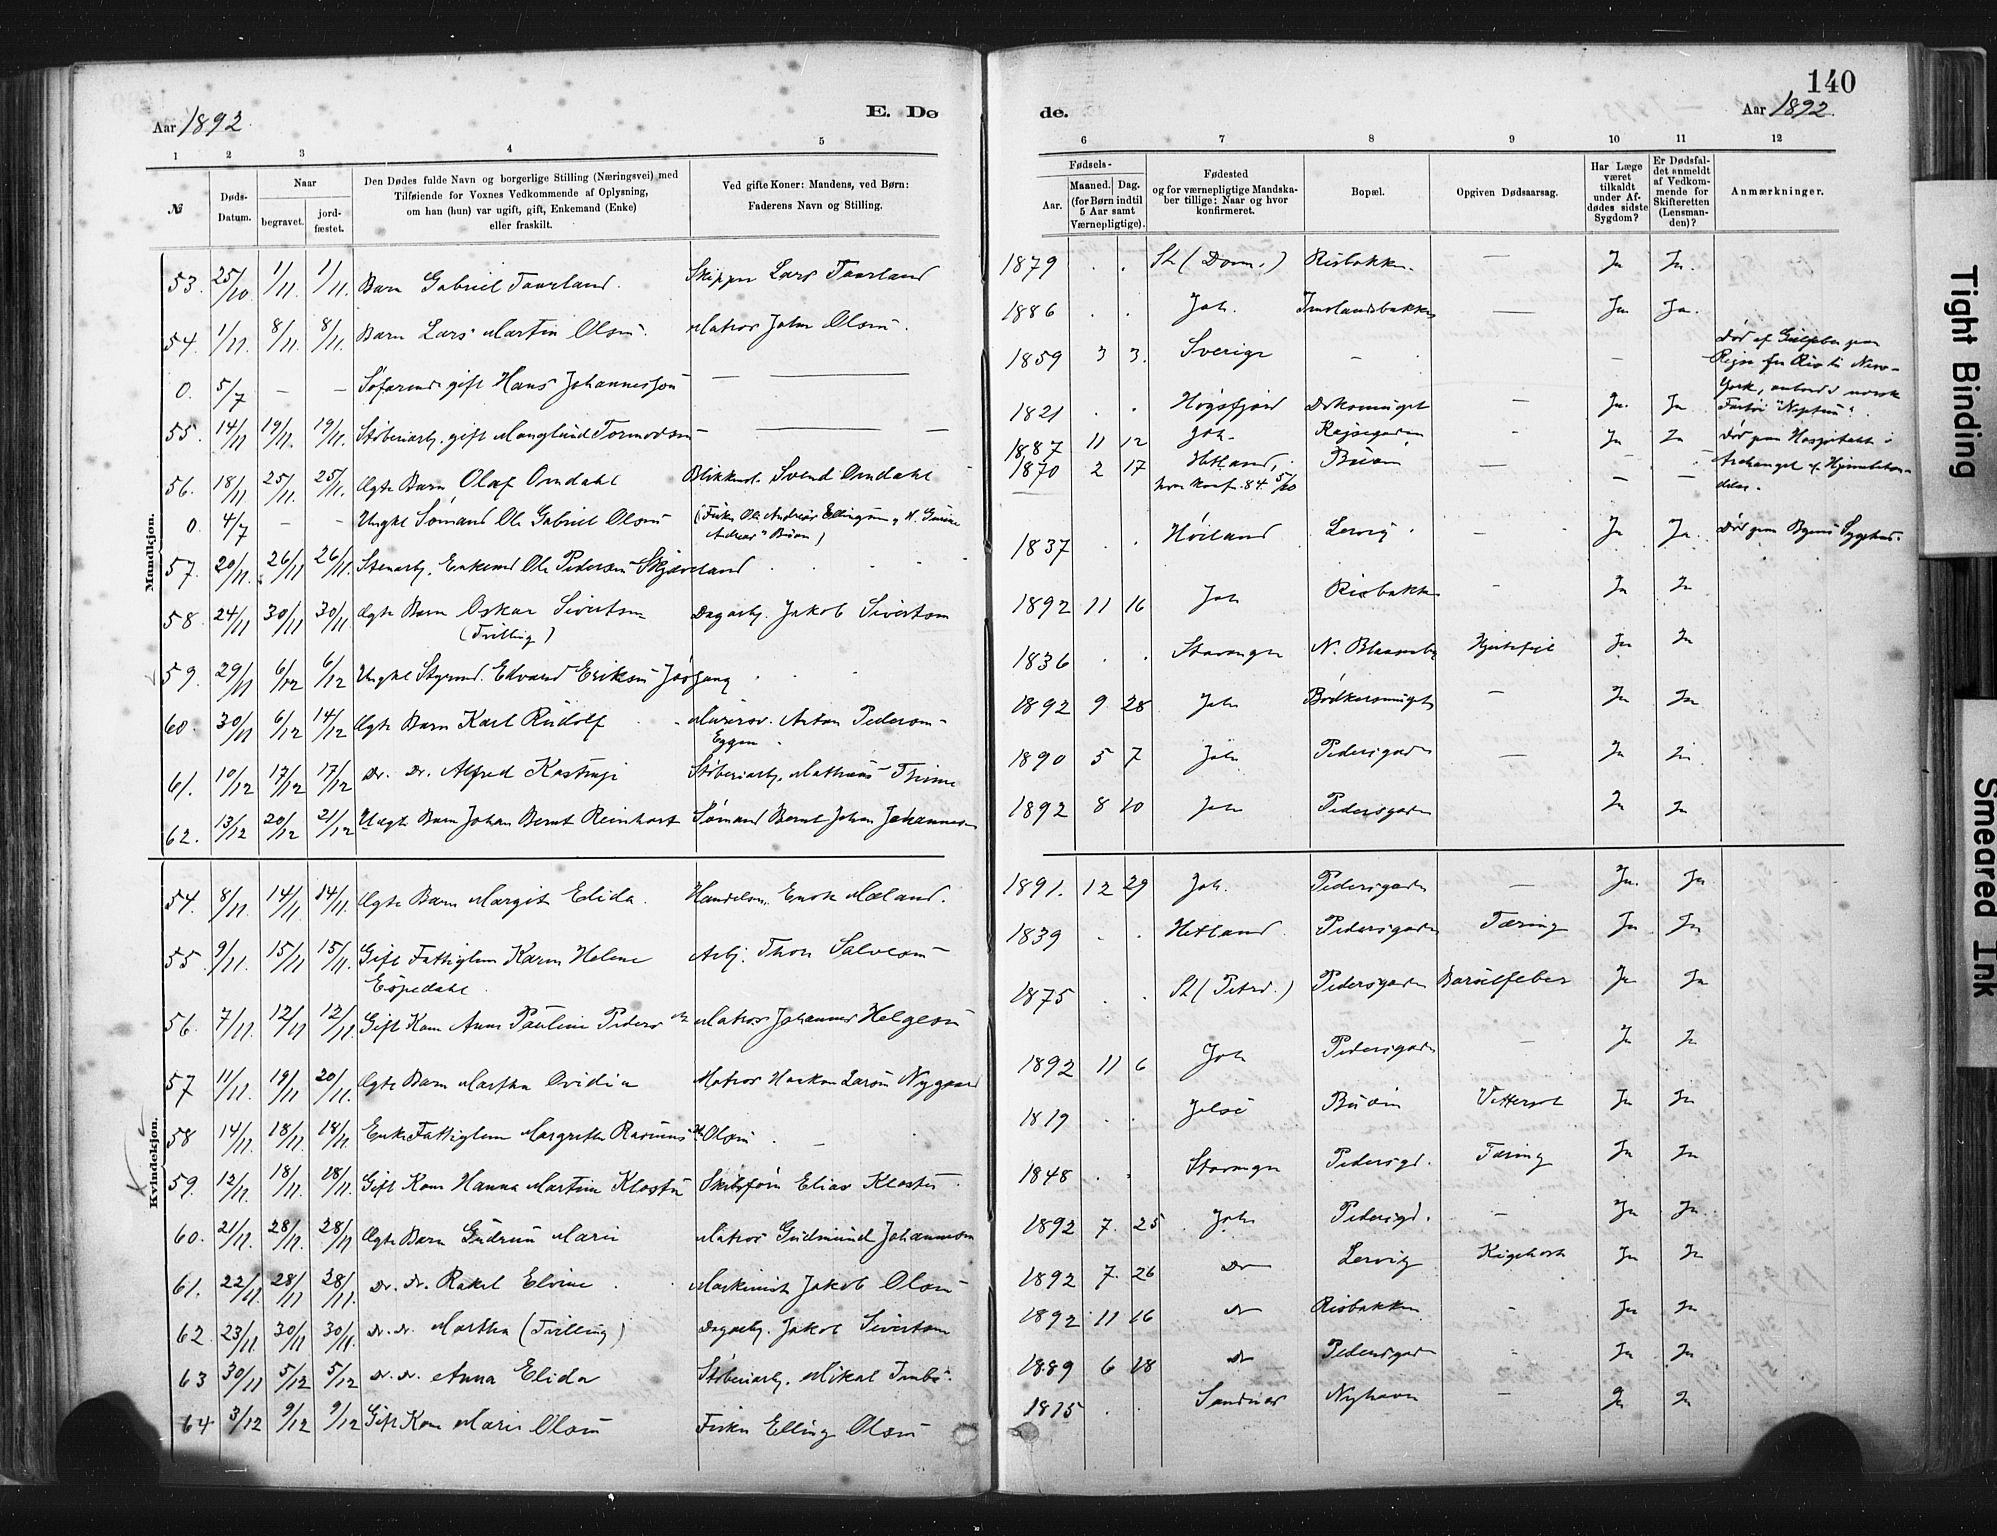 140
Aar 1892.
E. Dø
de.
Aar 1892.
1 2 3 4 5
6 7 8 9 10 11 12
№
Døds-
Datum.
Naar
begravet.
jord-
fæstet.
Den Dødes fulde Navn og borgerlige Stilling (Næringsvei) med
Tilføiende for Voxnes Vedkommende af Oplysning,
om han (hun) var ugift, gift, Enkemand (Enke)
eller fraskilt.
Ved gifte Koner: Mandens, ved Børn:
Faderens Navn og Stilling.
Fødsels-
Aar.
Maaned. Dag.
(for Børn indtil
5 Aar samt
Værnepligtige).
Fødested
og for værnepligtige Mandska-
ber tillige: Naar og hvor
konfirmeret.
Bopæl.
Opgiven Dødsaarsag.
Har Læge
været
tilkaldt
under Af-
dødes sidste
Sygdom?
Er Dødsfal-
det anmeldt
af Vedkom-
mende for
Skifteretten
(Lensman-
den)?
Anmærkninger.
Mandkjøn.
53. 25/10 1/11 1/11. Barn Gabriel Taarland. Skipper Lars Taarland 1879 . . St (Dom.) Risbakken. — Ja Ja.
54. 1/11 8/11. 8/11. Barn Lars Martin Olsen. Matros John Olsen. 1886 . . Joh. — Ja Ja.
0. 5/7 — — Søfarende gift Hans Johannessen — 1859 3 3. Sverige — — Død af
Reise fra Rio til New-
York, ombord i norsk
Fartøi "Neptun".
55. 14/11 19/11. 19/11. Støberiarb. gift Tormodsen — 1821 . . Høgsfjord - Ja. Ja
56. 18/11 25/11. 25/11. Ægte Barn Olaf Omdahl Blikkensl. Svend Omdahl 1887 11 12 Joh. - Ja Ja
0. 4/7 - - Ungkl Sømand Ole Gabriel Olsen (Fisker Ole Andreas Ellingsen
Buøen) 1870 2 17 Hetland, Buøen — — — Død paa Hospitalet i
Archangel af
57. 20/11. 26/11 26/11. Stenarb. Enkemd Ole Pedersen Skjæveland 1837 . . Høiland Lervig. - Ja Ja. Død paa Byens Sygehus.
58. 24/11 30/11 30/11. Ægte Barn Oskar Sivertsen
(Tvilling) Dagarb. Jakob Sivertsen 1892 11 16 Joh Risbakken - Ja Ja
59. 29/11 6/12 6/12 Ungkl Styrmd. Edvard Eriksen 1836 . . Stavanger N. Blaasenby Hjertefeil Ja Ja
60. 30/11 6/12 14/12 Ægte Barn Karl Rudolf Anton Pedersen
Eggen. 1892 9 28 Joh Bødkersmuget — Ja Ja
61. 10/12 17/12 17/12 Do. Do. Alfred Støberiarb. Mathias Thime 1890 5 7 Joh Pedersgaden — Ja Ja
62. 13/12 20/12 21/12 Uægte Barn Johan Bernt Reinhart Sømand Bernt Johan Johannesen 1892 8 10 Joh Pedersgaden Ja Ja
Kvindekjøn.
54. 8/11. 14/11. 14/11. Ægte Barn Margit Elida. Handelsm. Enok Mæland. 1891. 12 29 Joh. Pedersgaden — Ja. Ja
55. 9/11. 15/11 15/11 Gift Fattiglem Karen Helene
Espedahl. Arb. Thore Salvesen 1839 . . Hetland. Pedersgaden Tæring Ja Ja
56. 7/11. 12/11 12/11. Gift Kone Anne Pauline Pedersdtr Matros Johannes Helgesen 1875 . . St (Petrd.) Pedersgaden Barselfeber Ja Ja
57 11/11. 19/11 20/11. Ægte Barn Martha Ovidia Matros Haakon Larsen Nygaard 1892 11 6 Joh Pedersgaden - Ja Ja
58 14/11. 18/11. 18/11 Enke Fattiglem Margrethe Rasmusdtr Olsen . — 1819 . . Jelse Buøen Vattersot Ja Ja
59. 12/11. 18/11. 18/11. Gift Kone Hanna Martine Kloster Skibsfører Elias Kloster 1848 . . Stavanger Pedersgd. Tæring Ja Ja
60. 21/11. 28/11. 28/11 Ægte Barn Gudrun Marie Matros Gudmund Johannesen 1892 7. 25 Joh Pedersgd. - Ja Ja.
61. 22/11. 28/11 28/11. Do. Do. Rakel Elvine Maskinist Jakob Olsen 1892 7. 26 Do Lervig Kighoste Ja Ja
62. 23/11. 30/11 30/11. Do. Do. Martha (Tvilling) Dagarb. Jakob Sivertsen 1892 11 16 Do Risbakken - Ja Ja
63 30/11 5/12 5/12 Do. Do. Anna Elida Støberiarb. Mikal 1889 6 18 Do Pedersgaden - Ja Ja
64 3/12 9/12 9/12 Gift Kone Maren Olsen Fisker Elling Olsen 1815 . . Sandnæs Nyhavn — Ja Ja
Tight Binding
Smeared Ink